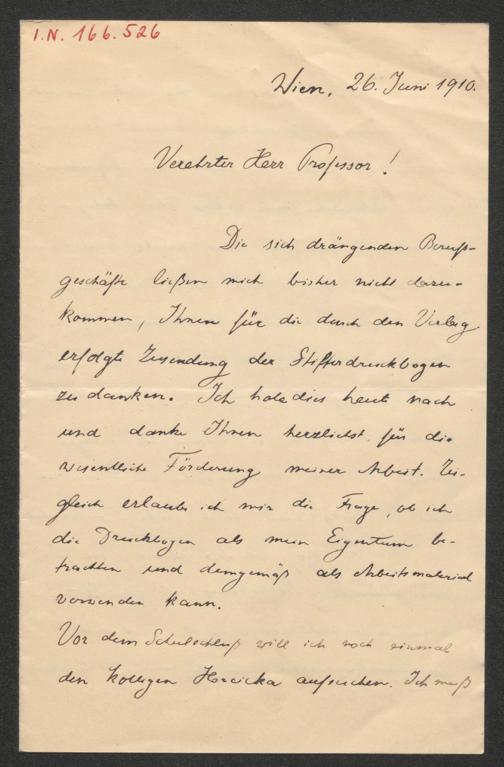 I.N. 166.526
Wien, 26. Juni 1910.
Verehrter Herr Professor!
Die sich drängenden Berufs-
geschäfte ließen mich bisher nicht dazu-
kommen, Ihnen für die durch den Verlag
erfolgte Zusendung der Stifterdruckbogen
zu danken. Ich hole dies heute nach
und danke Ihnen herzlichst für die
wesentliche Förderung meiner Arbeit. Zu-
gleich erlaube ich mir die Frage, ob ich
die Druckbogen als mein Eigentum be-
trachten und demgemäß als Arbeitsmaterial
verwenden kann.
Vor dem Schulschluß will ich noch einmal
den Kollegen Horcicka aufsuchen. Ich muß